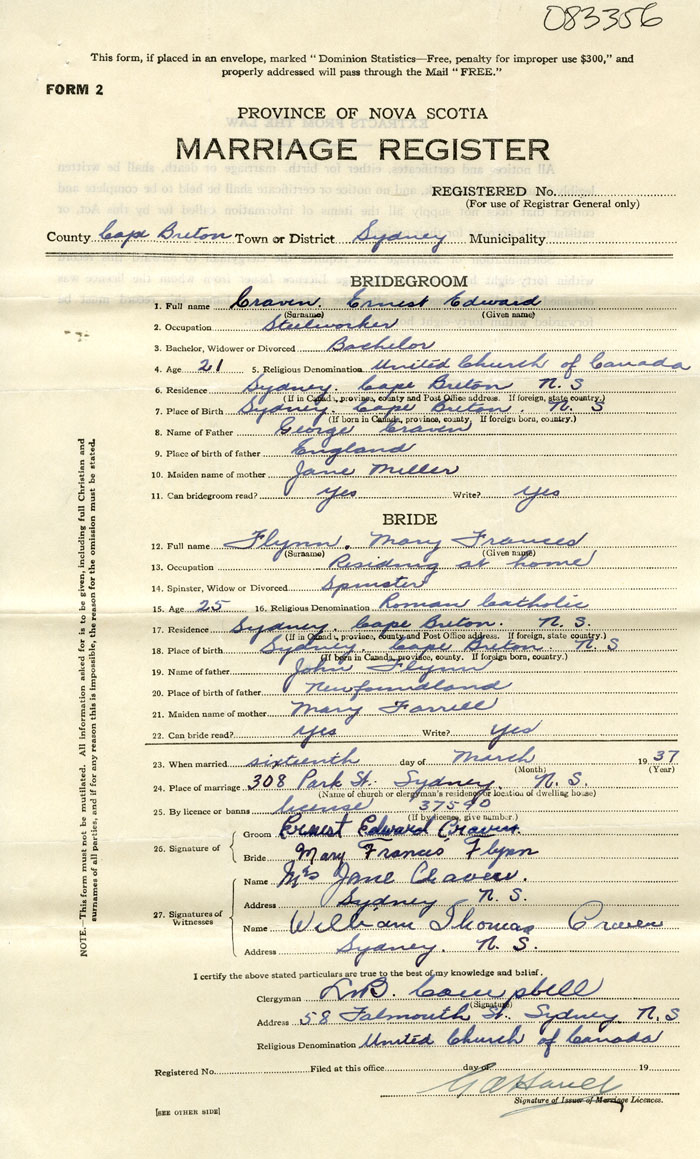 083356
This form, if placed in an envelope, marked "Dominion Statistics—Free, penalty for improper use $300," and
properly addressed will pass through the Mail "FREE."
FORM 2
PROVINCE OF NOVA SCOTIA
MARRIAGE REGISTER
REGISTERED No.
(For use of Registrar General only)
County Cape Breton Town or District Sydney Municipality
BRIDEGROOM
1. Full name Craven. Ernest Edward
(Surname) (Given name)
2. Occupation Steelworker
3. Bachelor, Widower or Divorced Bachelor
4. Age 21 5. Religious Denomination United Church of Canada
6. Residence Sydney. Cape Breton N. S
(If in Canada, province, county and Post Office address. If foreign, state country.)
7. Place of Birth Sydney. Cape Breton. N. S
(If born in Canada, province, county. If foreign born, country.)
8. Name of Father George Craven
9. Place of birth of father England
10. Maiden name of mother Jane Miller
11. Can bridegroom read? yes Write? yes
BRIDE
12. Full name Flynn. Mary Frances
(Surname) (Given name)
13. Occupation Residing at home
14. Spinster, Widow or Divorced Spinster
15. Age 25 16. Religious Denomination Roman Catholic
17. Residence Sydney. Cape Breton. N. S.
(If in Canada, province, county and Post Office address. If foreign, state country.)
18. Place of birth Sydney. Cape Breton. N. S
(If born in Canada, province, county. If foreign born, country.)
19. Name of father John Flynn
20. Place of birth of father Newfoundland
21. Maiden name of mother Mary Farrell
22. Can bride read? yes Write? yes
23. When married sixteenth day of March 19 37
(Month) (Year)
24. Place of marriage 308 Park St. Sydney. N. S.
(Name of church or clergyman's residence or location of dwelling house)
25. By licence or banns license 37590
(If by licence, give number.)
26. Signature of
Groom Ernest Edward Craven.
Bride Mary Frances Flynn
27. Signatures of Witnesses
Name Mrs Jane Craven.
Address Sydney N. S.
Name William Thomas Craven
Address Sydney. N. S.
I certify the above stated particulars are true to the best of my knowledge and belief.
Clergyman Campbell
(Signature)
Address 58 Falmouth St. Sydney N. S
Religious Denomination United Church of Canada
Registered No. Filed at this office day of 19
Signature of Issuer of Marriage Licences.
[SEE OTHER SIDE]
NOTE.—This form must not be mutilated. All information asked for is to be given, including full Christian and
surnames of all parties, and if for any reason this is impossible, the reason for the omission must be stated.